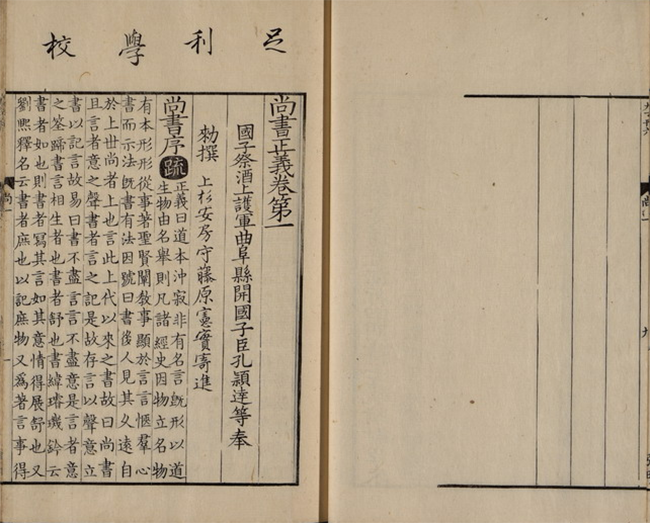 足利學校
尚書正義卷第一
國子祭酒上護軍曲阜縣開國子臣孔穎達等奉
勑撰　上杉安房守藤原憲實寄進
尚書序疏正義曰道本沖寂非有名言旣形以道
生物由名舉則凡諸經史因物立名物
有本形形從事著聖賢闡敎事顯於言言愜羣心
書而示法旣書有法因號曰書後人見其久遠自
於上世尚者上也言此上代以來之書故曰尚書
且言者意之聲書者言之記是故存言以聲意立
書以記言故易曰書不盡言言不盡意是言者意
之筌蹄書言相生者也書者舒也書緯璿璣鈐云
書者如也則書者寫其言如其意情得展舒也又
劉熙釋名云書者庶也以記庶物又爲著言事得
尚
一